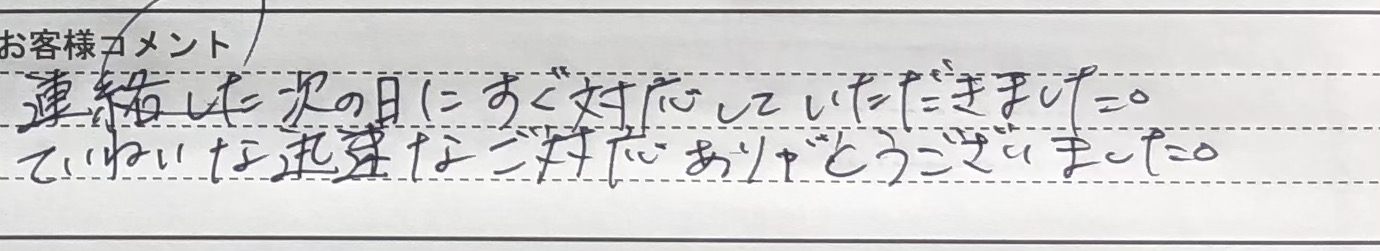 お客様コメント
連絡した次の日にすぐ対応していただきました。
ていねいな迅速なご対応ありがとうございました。